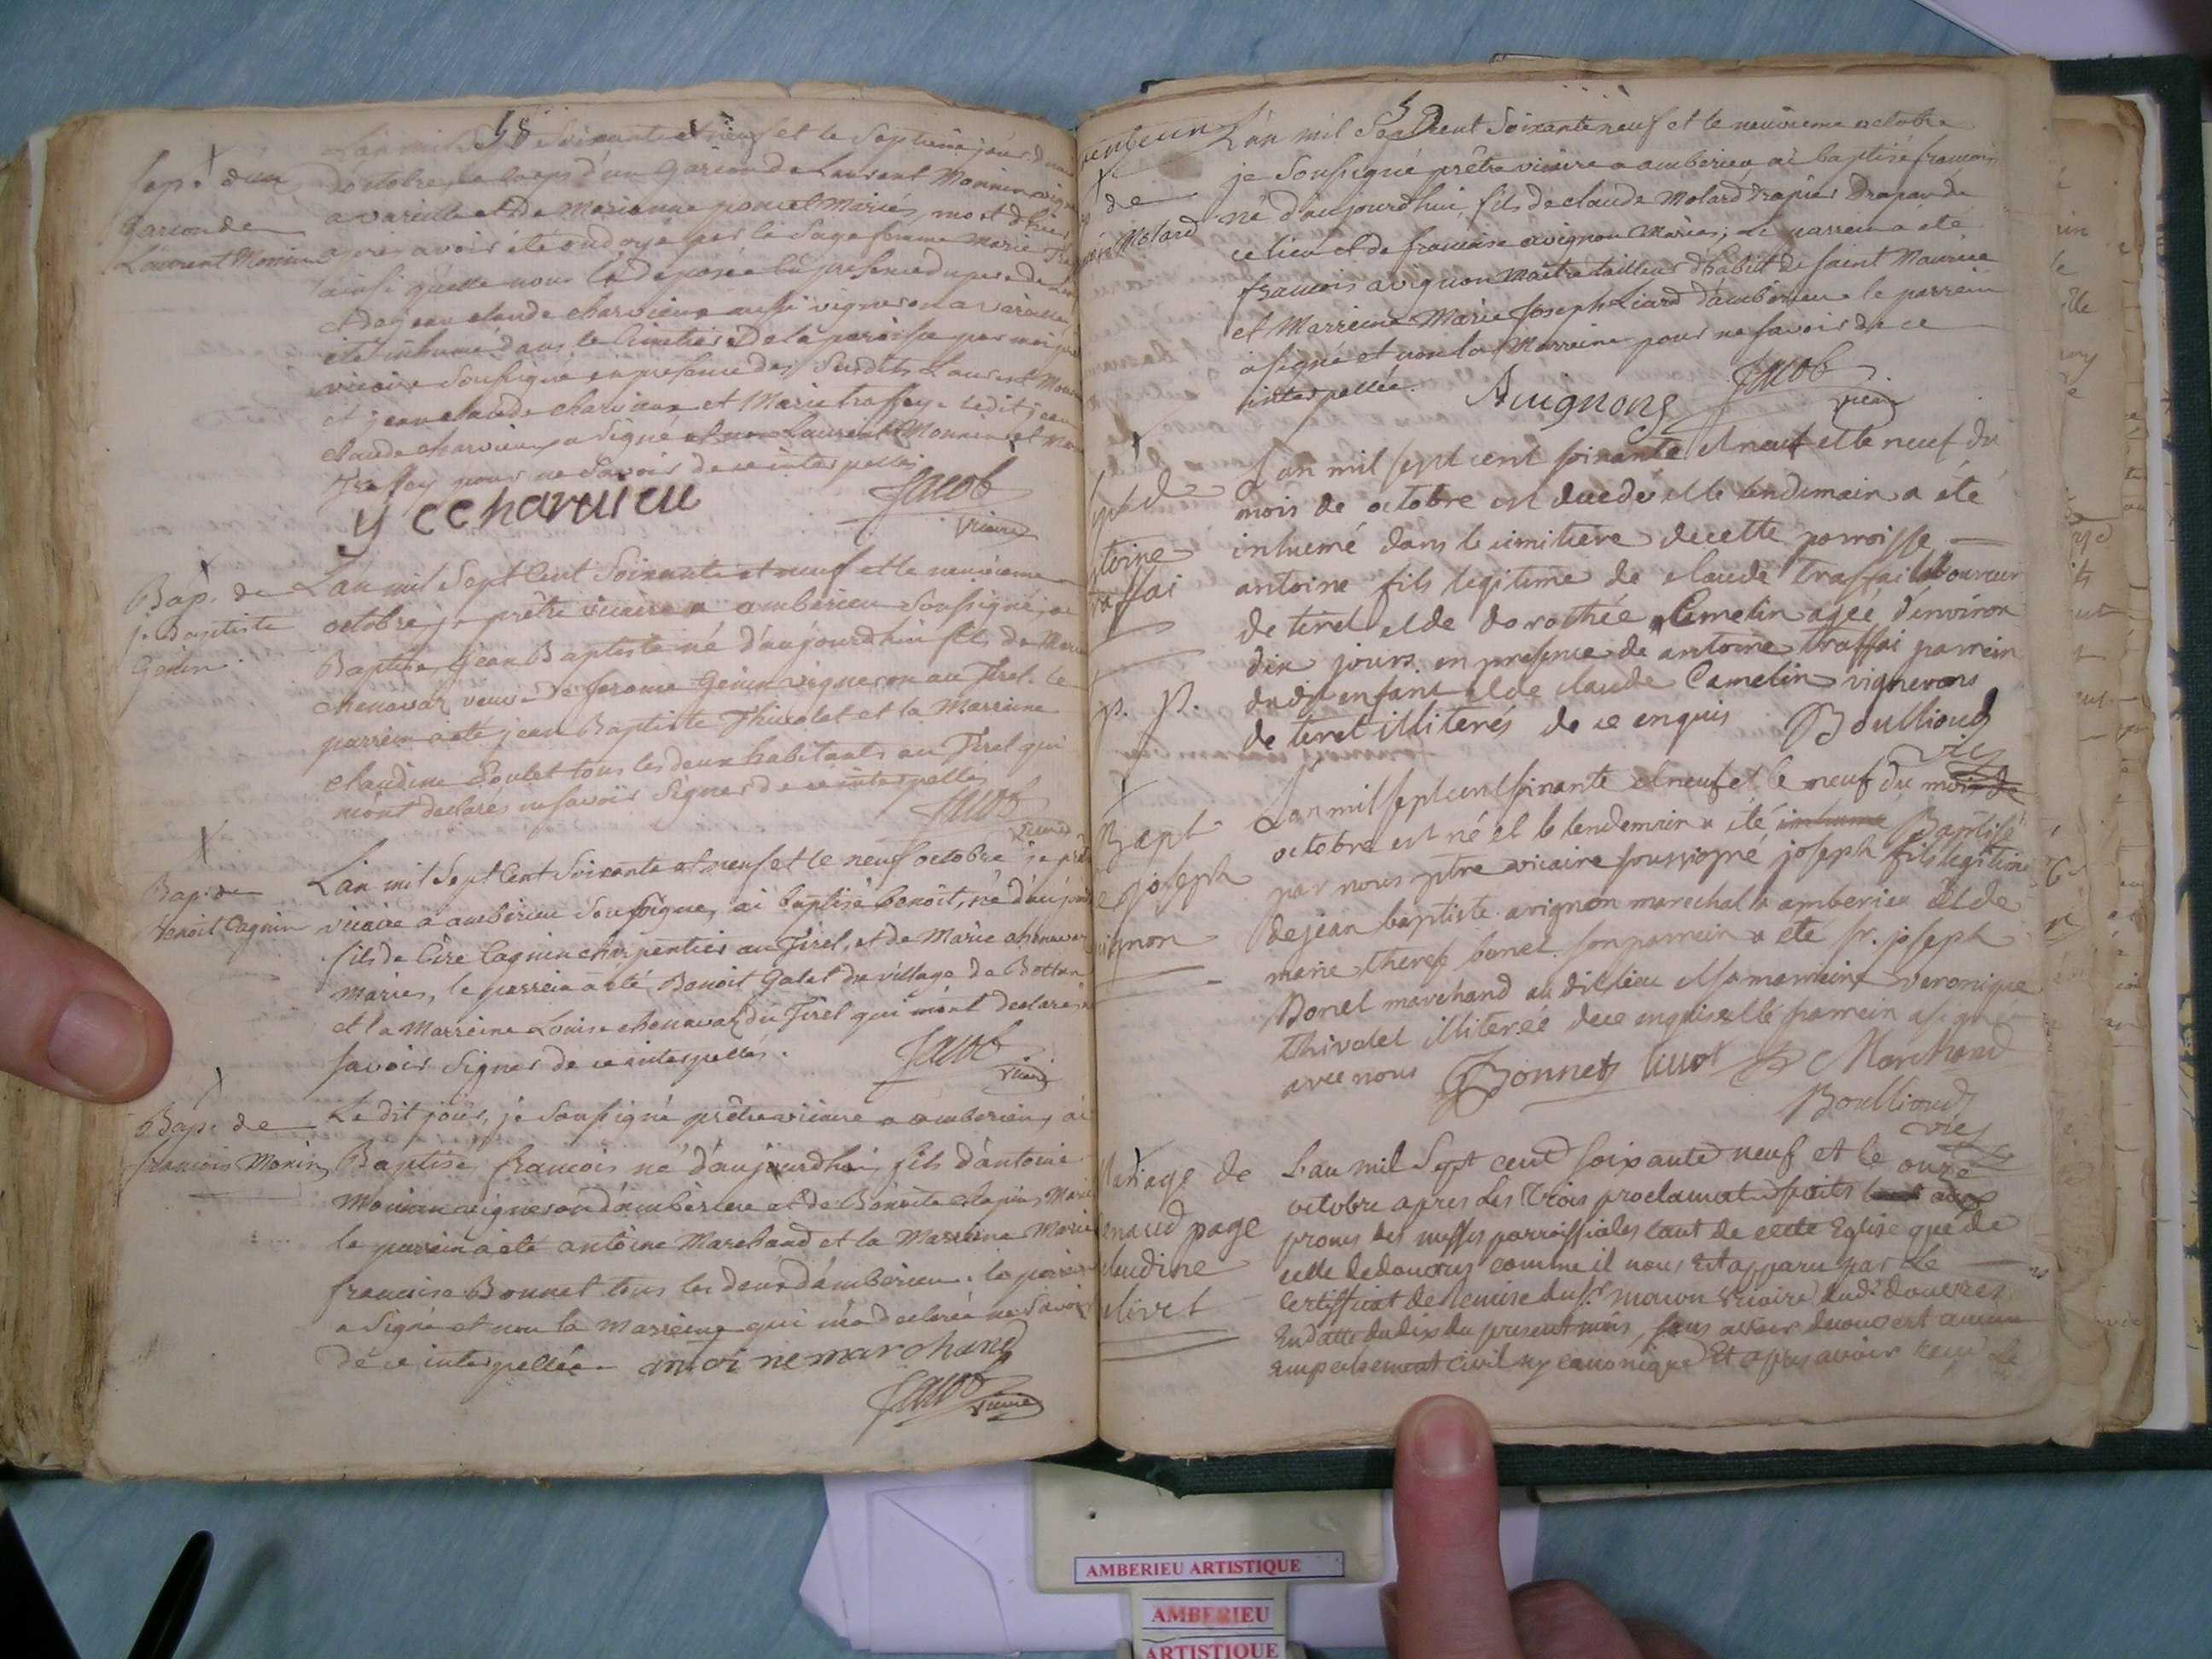 L'an mil Sept Soixante et neuf et le Septieme jour du
Sep. d'un
garcon de
Laurent Monnin
d'octobre, le corps d'un garcon de Laurent Monnin vigneron
a vareille et de Marianne poncet Mariés, mort d'hier
apres avoir été ondoyé par la Sage femme Marie
ainsi qu'elle nous l'a déposé en presence du pere de
et de jean claude charvieux aussi vigneron a vareille
été inhumé dans le Cimetiere De la paroisse par moi
vicaire Soussigné en presence des Susdits Laurent
et jean claude charvieux et Marie traffey. ledit jean
claude charvieux a Signé et non Laurent Monnin et
Traffey pour ne Savoir de ce interpellés
y c charvieu
Jacob
vicaire
Bap. de
j. Baptiste
Genin.
L'an mil Sept Cent Soixante et neuf et le neuvieme
octobre je prêtre vicaire a amberieu Soussigné, ai
Baptisé jean Baptiste né d'aujourdhui fils de
chenavaz veuve de jerome Genin vigneron au Tiret. le
parrein a eté jean Baptiste Thivolet et la Marreine
claudine Goulet tous les deux habitants au Tiret qui
m'ont declarés ne savoir Signer de ce interpellés
Jacob
vicaire
Bap. de
benoit Cagnin
L'an mil Sept Cent Soixante et neuf et le neuf octobre je
vicaire a amberieu Soussigné, ai baptisé benoit, né d'aujourd
fils de Cire Cagnin charpentier au Tiret, et de Marie chenavaz
Mariés, le parrein a été Benoit Galet du village de
et la Marreine Louise chenavaz du Tiret qui m'ont declaré
savoir Signer de ce interpellés.
Jacob
vicaire
Bap. de
francois Monin
Le dit jour, je Soussigné prêtre vicaire a amberieu, ai
Baptisé francois né d'aujourdhui fils d'antoine
Monin vigneron d'amberieu et de Benoite
le parrein a eté antoine Marchand et la Marreine Marie
francoise Bonnet tous les deux d'amberieu. le parrein
a Signé et non la Marreine qui m'a declarée ne Savoir
de ce interpellée
antoi ne marchand
Jacob
vicaire
L'an mil Sept Cent Soixante neuf et le neuvieme octobre
de
Molard
je Soussigné prêtre vicaire a amberieu, ai baptisé francois
né d'aujourdhui, fils de claude Molard
ce lieu et de francoise avignon Mariés; le parrein a été
francois avignon Maître tailleur d'habit de saint Maurice
et Marreine Marie Joseph Liard d'amberieu. le parrein
a signé et non la Marreine pour ne savoir de ce
interpellée.
Avignon
Jacob
vicaire
toine
affai
p. p.
L'an mil sept cent soixante et neuf et le neuf du
mois de octobre est decedé et le lendemain a été
inhumé dans le cimitiere de cette parroisse
antoine fils legitime de claude traffai laboureur
de tiret et de dorothée Camelin agée d'environ
dix jours en presence de antoine traffai parrein
dudt enfant et de claude Camelin vignerons
de tiret illiterés de ce enquis
Boullioud
vic
Bapt
e joseph
ignon
L'an mil sept cent soixante et neuf et le neuf du mois de
octobre est né et le lendemain a été inhumé Baptisé
par nous ptre vicaire soussigné joseph fils legitime
de jean baptiste avignon marechal a amberieu et de
marie therese bonet son parrein a eté sr. joseph
Bonet marchand au dit lieu et sa marreine veronique
thivolet illiterée de ce enquise le parrein a signé
avec nous
Bonnet
Marchand
Boullioud
vic
Mariage de
enaud page
laudine
livet
L'an mil Sept cent soixante neuf et le onze
octobre apres les trois proclamations faites aux
prones des messes parroissiales tant de cette Eglise que de
celle de douvres comme il nous est apparu par le
Certifficat de remise du sr maron vicaire dud. douvres
En datte du dix du present mois, sans avoir decouvert aucun
Empechement civil ny canonique Et apres avoir recu le
AMBERIEU ARTISTIQUE
AMBERIEU
ARTISTIQUE